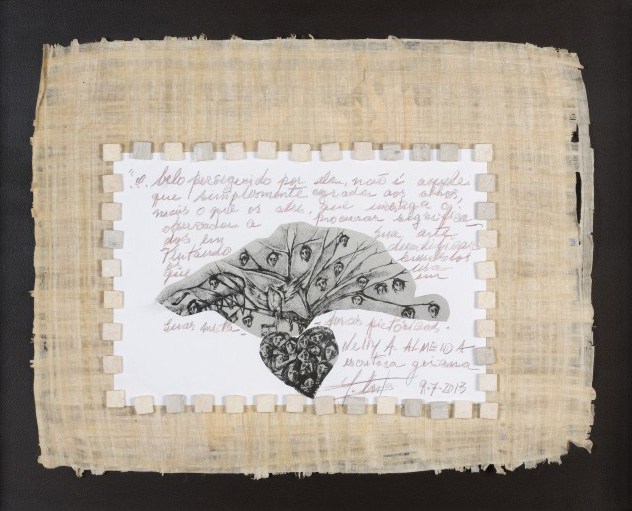 "O belo perseguido por ela, não é aquele
que simplesmente agrada aos olhos,
mais o que os abre, que instiga o
observador a procurar significa-
dos em sua arte
Pintando
que usa em
suas metá- foras pictóricas.
Nelly A. ALMEIDA
escritora goiana
9-7-2013